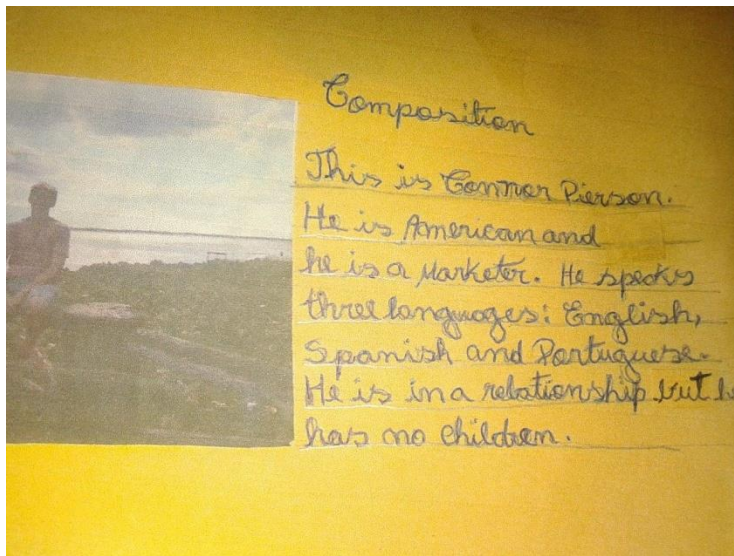 Composition
This is Connor Pierson.
He is American and
he is a Marketer. He specks
three languages: English,
Spanish and Portuguese.
He is in a relationship but h
has no children.